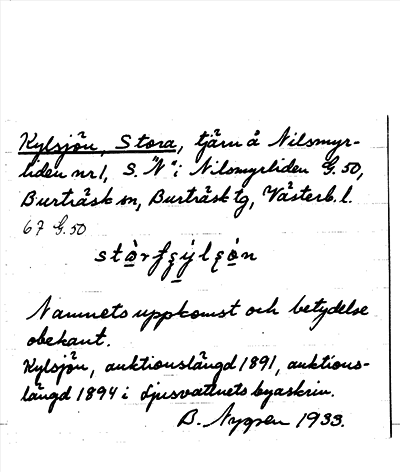 Kylsjön, Stora, tjärn å Nilsmyr-
liden nr 1, S. "N" i Nilsmyrliden G.50,
Burträsk sn, Burträsk tg, Västerb. l.
67 G.50
Namnets uppkomst och betydelse
obekant.
Kylsjön, auktionslängd 1891, auktions-
längd 1894 i Ljusvattnets byaskrin.
B. Nygren 1933.